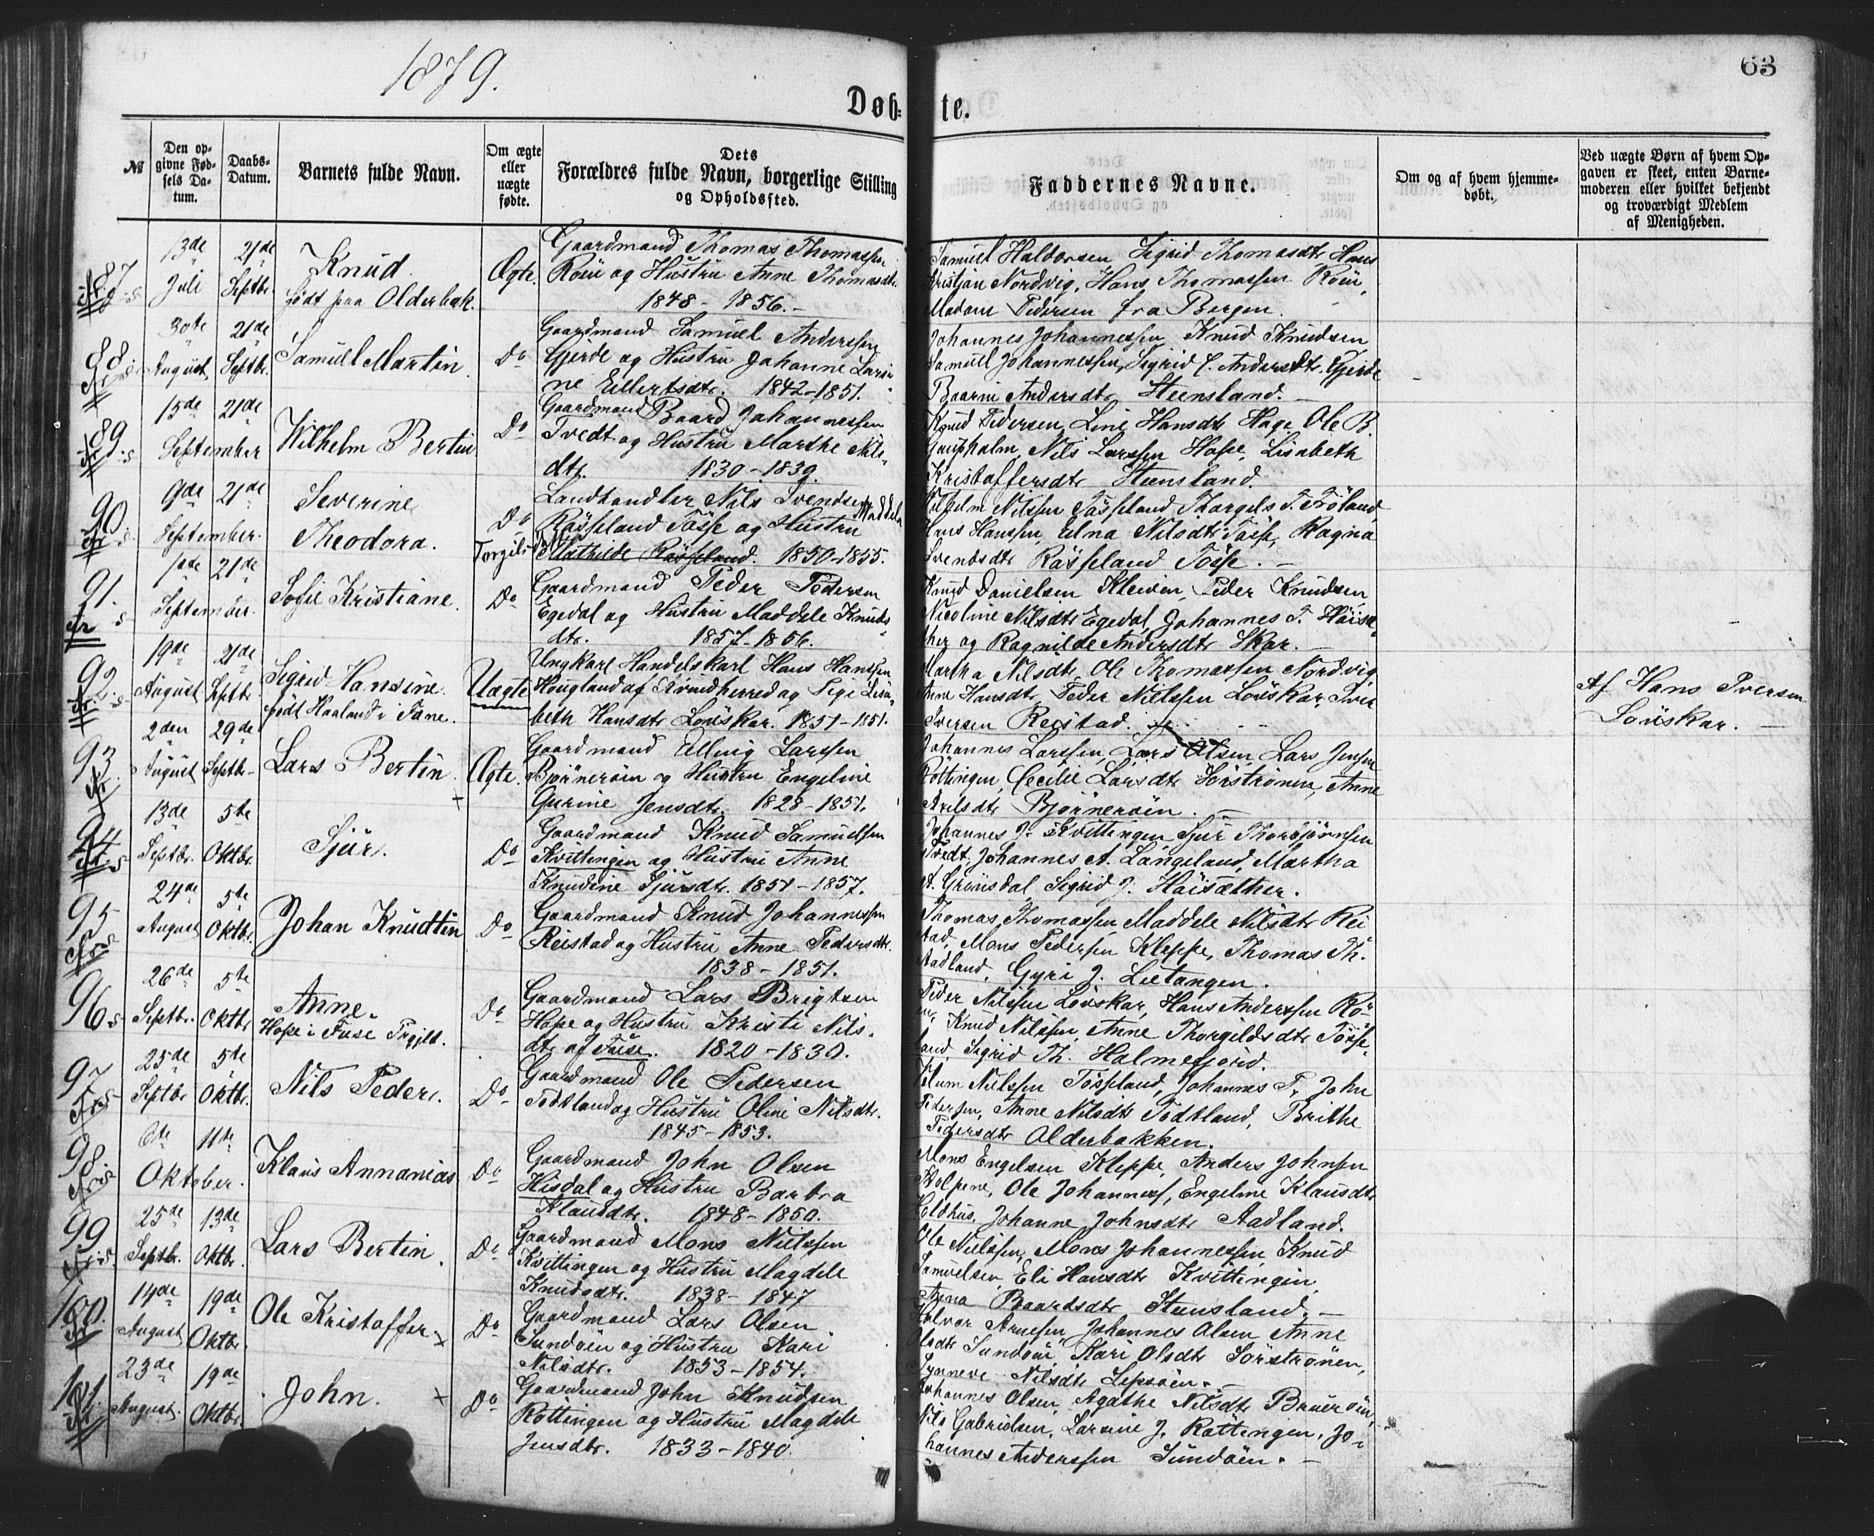 1879.
63
Døb-
te.
№
Den op-
givne Fød-
sels Da-
tum.
Daabs-
Datum.
Barnets fulde Navn.
Om ægte
eller
uægte
fødte.
Dets
Forældres fulde Navn, borgerlige Stilling
og Opholdssted.
Faddernes Navne.
Om og af hvem hjemme-
døbt.
Ved uægte Børn af hvem Op-
gaven er skeet, enten Barne-
moderen eller hvilket bekjendt
og troværdigt Medlem
af Menigheden.
87
13de
Juli
21de
Septbr
Knud
født paa Olderbak.
Ægte.
Gaardmand Thomas Thomassen
Röen og Hustru Anne Thomasdtr
1848 - 1856.
Samuel Haldorsen Sigrid Thomasdtr, Hans
Kristian Nordvig, Hans Thomassen Röen,
Madam Pedersen fra Bergen.
88
30te
August
21de
Septbr.
Samuel Martin.
Do
Gaardmand Samuel Anderssen
Gjerde og Hustru Johanne Larsi
ne Eilertsdtr. 1842-1851.
Johannes Johannessen, Knud Knudsen
Samuel Johannessen, Sigrid C. Andersdtr. Gjerde
Baarni Andersdtr Steensland.
89
15de
September
21de
Wilhelm Bertin
Do
Gaardmand Baard Johannessen
Tvedt og Hustru Marthe Nils-
dtr. 1830-1839.
Knud Pedersen, Line Hansdtr Hage, Ole B.
Gaupholm, Nils Larssen Hope, Lisabeth
Kristaffersdtr Steensland.
90
9de
September.
21de
Severine
Theodora.
Do
Landhandler Nils Svendsen
Røssland Töse og Hustru
1850-1855.
Vilhelm Nilssen Tøssland, Thorgels T. Tröland,
Hans Hanssen, Elna Nilsdtr Töse, Ragna
Svendsdtr Røssland Töse.
91.
1ste
September.
21de
Sofie Kristiane.
Do
Gaardmand Peder Pedersen
Egedal og Hustru Maddele Knuds-
dtr. 1857-1856.
Knud Danielsen Kleiven, Peder Knudsen,
Nicoline Nilsdtr Egedal, Johannes P. Höisæ-
ther og Ragnilde Andersdtr Skar.
92
19de
August
21de
Septbr
Sigrid Hansine.
født Haaland i Fane.
Uægte
Ungkarl Handelskarl Hans Hanssen
Hougland af Kvindherred og Pige Lisa-
beth Hansdtr Löuskar. 1851-1851.
Martha Nilsdtr, Ole Thomassen Nordvig,
Anne Hansdtr, Peder Nielssen Löuskar, Iver
Iversen Reistad.
Af Hans Iversen
Löuskar.
93
2den
August
29de
Septbr
Lars Bertin.
Ægte.
Gaardmand Elling Larssen
Bjørnerøin og Hustru Engeline
Gurine Jensdtr. 1828-1851.
Johannes Larssen, Lars Olsen, Lars Jensen
Röttingen, Cecilie Larsdtr Sörströnen, Anne
Axelsdtr Bjørnerøin.
94
13de
Septbr.
5te
Oktbr
Sjur.
Do
Gaardmand Knud Samuelsen
Kvittingen og Hustru Anne
Knudine Sjursdtr. 1851-1857.
Johannes J. Kvittingen, Sjur Thorbjørnsen
Tvedt, Johannes A. Langeland, Martha
A. Grönsdal, Sigrid J. Höisæther.
95
24de
August
5te
Oktbr.
Johan Knudtin
Do
Gaardmand Knud Johannessen
Reistad og Hustru Anne Pedersdtr.
1838-1851.
Thomas Thomassen, Maddele Nilsdtr Rei
stad, Mons Pedersen Kleppe, Thomas Th.
Aadland, Gyri J. Lietangen.
96
26de
Septbr.
5te
Oktbr
Anne.
Hope i Fuse Prgjld.
Do
Gaardmand Lars Brigtsen
Hope og Hustru Kristi Nils-
dtr af Fuse. 1820-1830.
Peder Nilssen Löuskar, Hans Anderssen Rö-
en, Knud Nilssen, Anne Thorgilsdtr Töse-
land, Sigrid Th. Halmefjord.
97
25de
Septbr
5te
Oktbr.
Nils Peder.
Do
Gaardmand Ole Pedersen
Todtland og Hustru Oline Nilsdtr.
1845-1853.
Villum Nilssen Tøssland, Johannes P., John
Pedersen, Anne Nilsdtr Todtland, Brithe
Pedersdtr Olderbakken.
98
6te
Oktober.
11te
Klaus Annanias
Do
Gaardmand John Olsen
Hisdal og Hustru Barbra
Klausdtr. 1848-1850.
Mons Engelsen Kleppe, Anders Johnsen
Holpene, Ole Johanness, Engeline Klausdtr
Holdhus, Johanne Johnsdtr Aadland.
99
25de
Septbr.
13de
Oktbr.
Lars Bertin.
Do
Gaardmand Mons Nielssen
Kvittingen og Hustru Magdele
Knudsdtr. 1838-1847
Ole Nielssen, Mons Johannessen, Knud
Samuelsen, Eli Hansdtr Kvittingen,
Anna Baardsdtr Steensland.
100.
14de
August
19de
Oktbr.
Ole Kristaffer
Do
Gaardmand Lars Olsen
Sundøen og Hustru Kari
Nilsdtr. 1853-1854.
Halvor Arnesen, Johannes Olsen, Anne
Olsdtr Sundøen, Kari Olsdtr Sörströnen,
Synneve Nilsdtr Lepsøen.
101.
23de
August.
19de
Oktbr
John.
Do
Gaardmand John Knudsen
Röttingen og Hustru Magdele
Jensdtr. 1833-1840.
Johannes Olsen, Agathe Nilsdtr Bruerøin,
Nils Gabrielsen, Larsine J. Röttingen, Jo-
hannes Anderssen Sundøen.